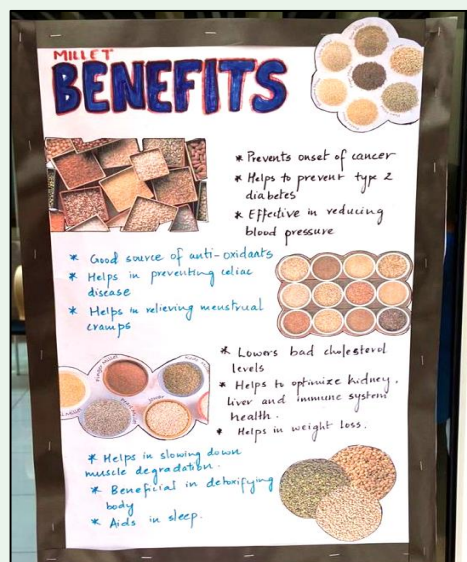 MILLET
BENEFITS
* Prevents onset of cancer
* Helps to prevent type 2
diabetes
* Effective in reducing
blood pressure
* Good source of anti-oxidants
* Helps in preventing celiac
disease
* Helps in relieving menstrual
cramps
* Lowers bad cholesterol
levels
* Helps to optimize kidney,
liver and immune system
health.
* Helps in weight loss.
* Helps in slowing down
muscle degradation.
* Beneficial in detoxifying
body
* Aids in sleep.